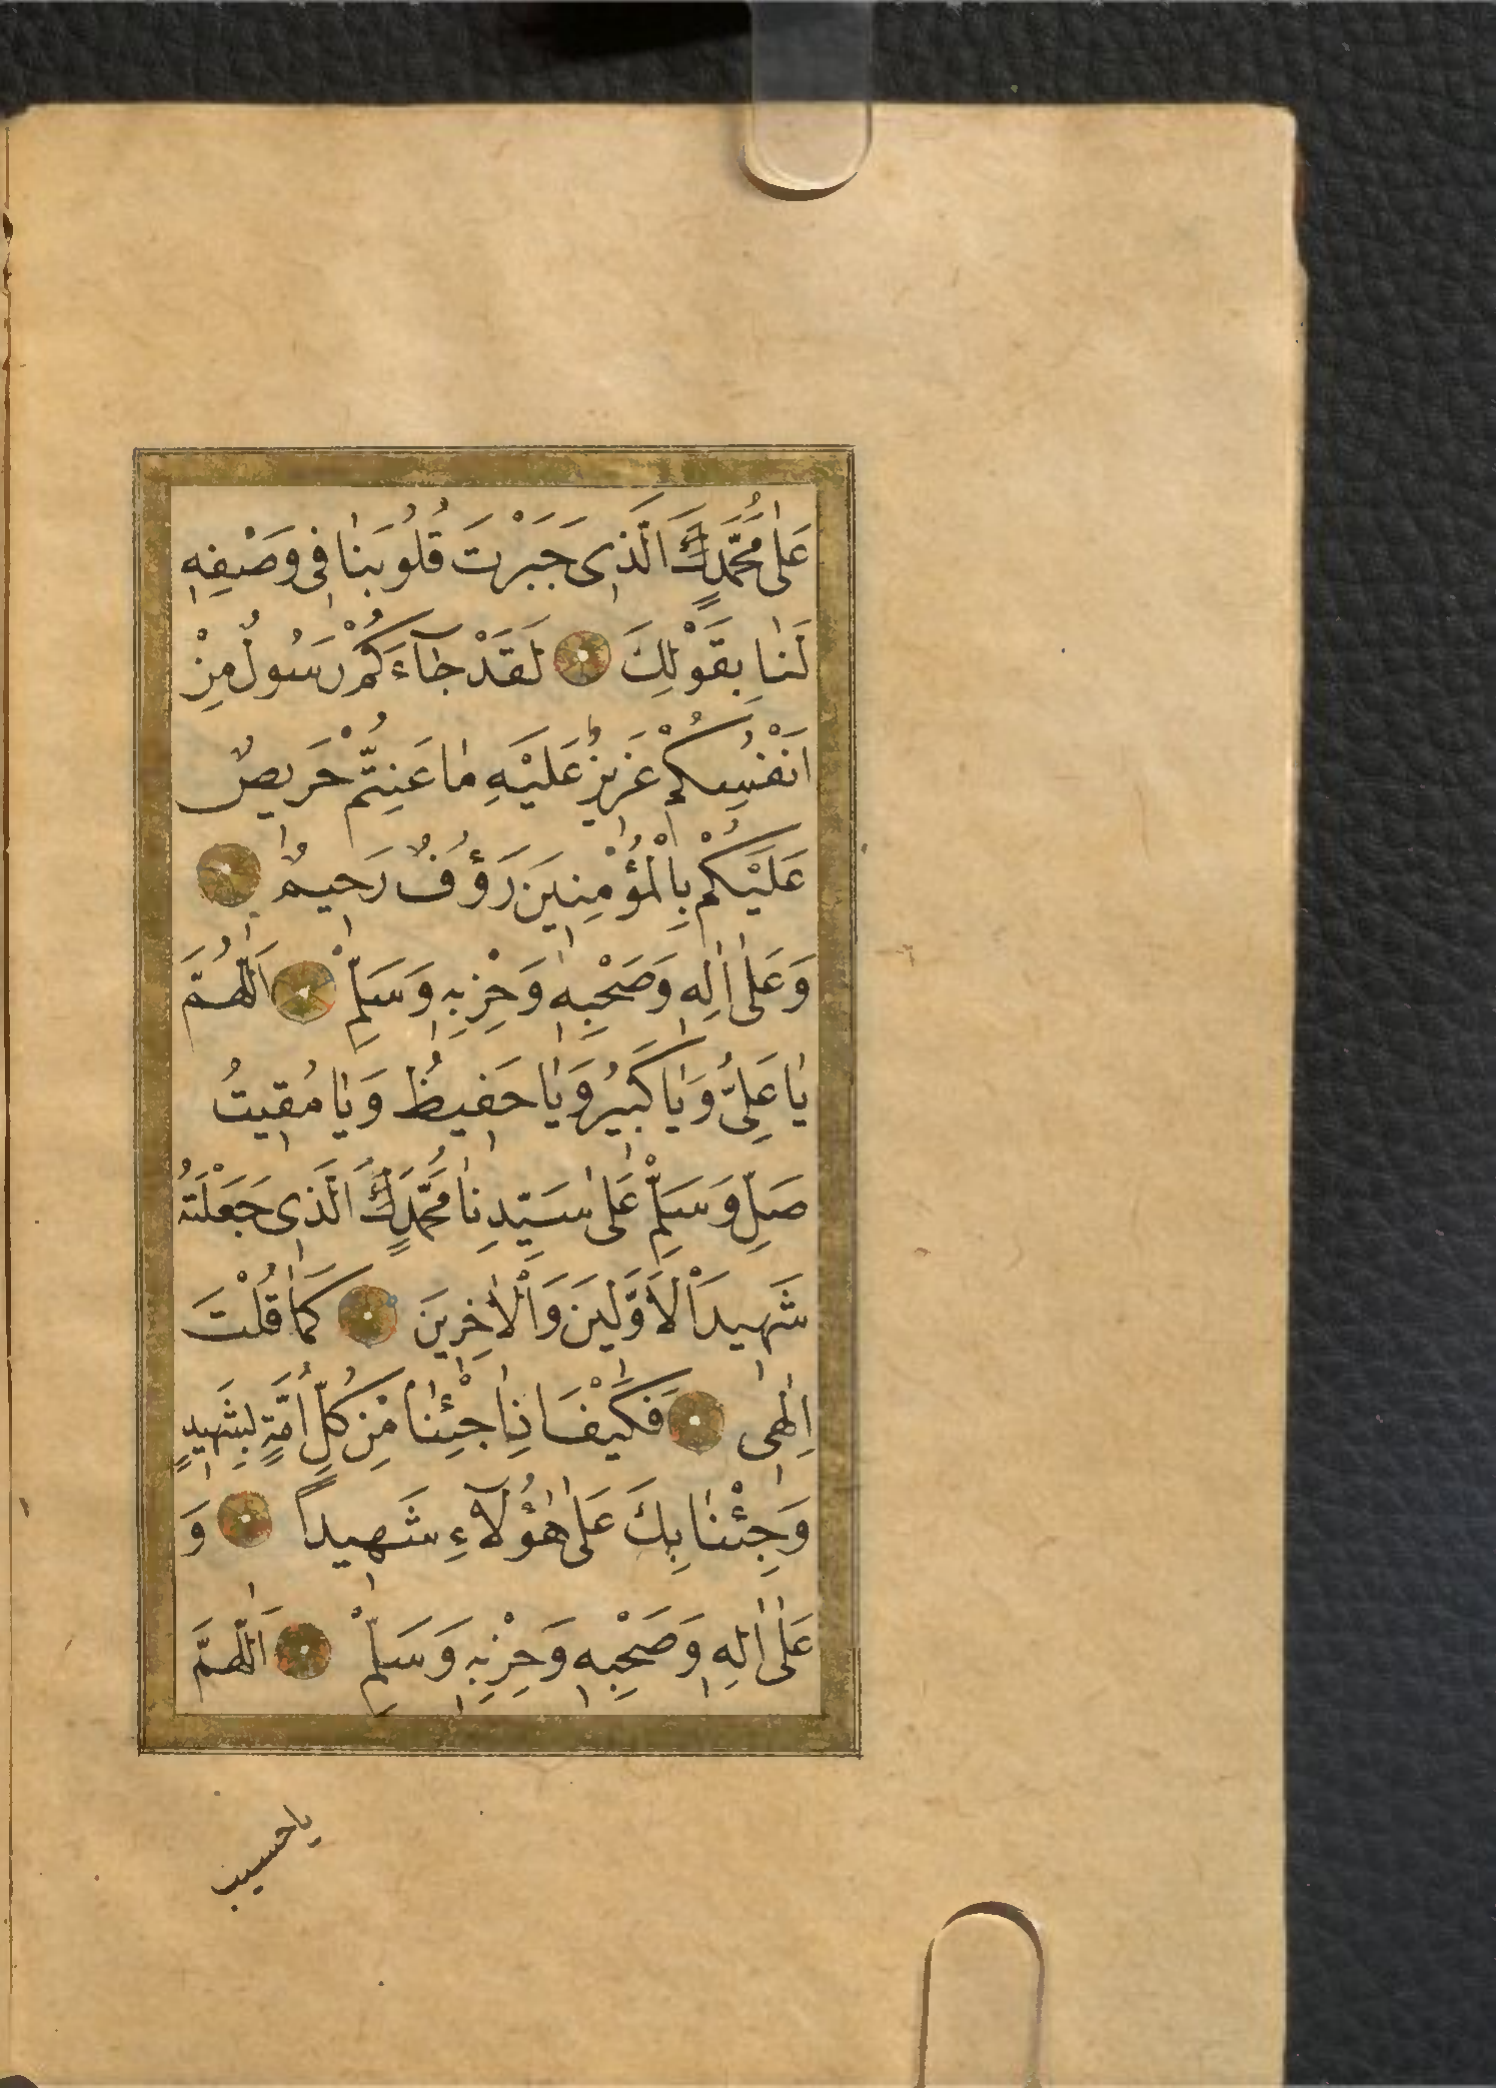 عَلٰى مُحَمَّدٍ ࣙالَّذِى جَبَرْتَ قُلُوبَنَا فِى وَصْفِهِ
لَنَا بِقَوْلِكَ لَقَدْ جَآءَكُمْ رَسُولٌ مِنْ
اَنْفُسِكُمْ عَزِيزٌ عَلَيْهِ مَا عَنِتُّمْ حَرِيصٌ
عَلَيْكُمْ بِالْمُؤْمِنِينَ رَؤُفٌ رَحِيمٌ
وَعَلٰى اٰلِهِ وَصَحْبِهِ وَحِزْبِهِ وَسَلِّمْ اَللّٰهُمَّ
يَا عَلِىُّ وَيَا كَبِيرُ وَيَا حَفِيظُ وَيَا مُقِيتُ
صَلِّ وَسَلِّمْ عَلٰى سَيِّدِنَا مُحَمَّدٍ الَّذِى جَعَلْتَهُ
شَهِيدَ اْلاَوَّلِينَ وَاْلاٰخِرِينَ كَمَا قُلْتَ
اِلٰهِى فَكَيْفَ اِذَا جِئْنَا مِنْ كُلِّ اُمَّةٍ بِشَهِيدٍ
وَجِئْنَا بِكَ عَلٰى هٰؤُلَآءِ شَهِيداً وَ
عَلٰى اٰلِهِ وَصَحْبِهِ وَحِزْبِهِ وَسَلِّمْ اَللّٰهُمَّ
يا حسيب